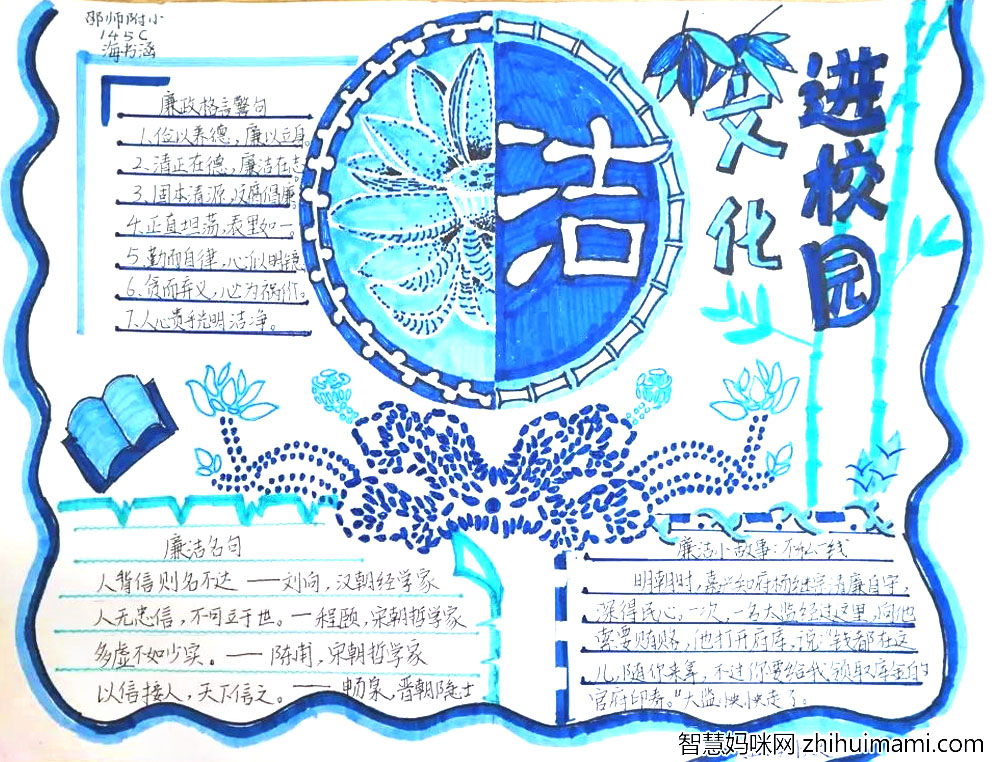 邵师附小
145C
海书涵
洁
文化
进校园
廉政格言警句
1.俭以养德，廉以立身。
2.清正在德，廉洁在志。
3.固本清源，反腐倡廉
4.正直坦荡，表里如一。
5.勤而自律，心似明镜
6.贪而弃义，必为祸作。
7.人心贵乎光明洁净。
廉洁名句
人背信则名不达 ——刘向，汉朝经学家
人无忠信，不可立于世。—程颐，宋朝哲学家
多虚不如少实。——陈甫，宋朝哲学家
以信接人，天下信之。——畅泉，晋朝隐士
廉洁小故事：不私一线
明朝时，嘉兴知府杨继宗清廉自守，
深得民心，一次，一名太监经过这里，向他
索要贿赂，他打开府库，说："钱都在这
儿，随你来拿，不过你要给我领取库金的
官府印券。"太监怏怏走了。
智慧妈咪网 zhihuimami.com